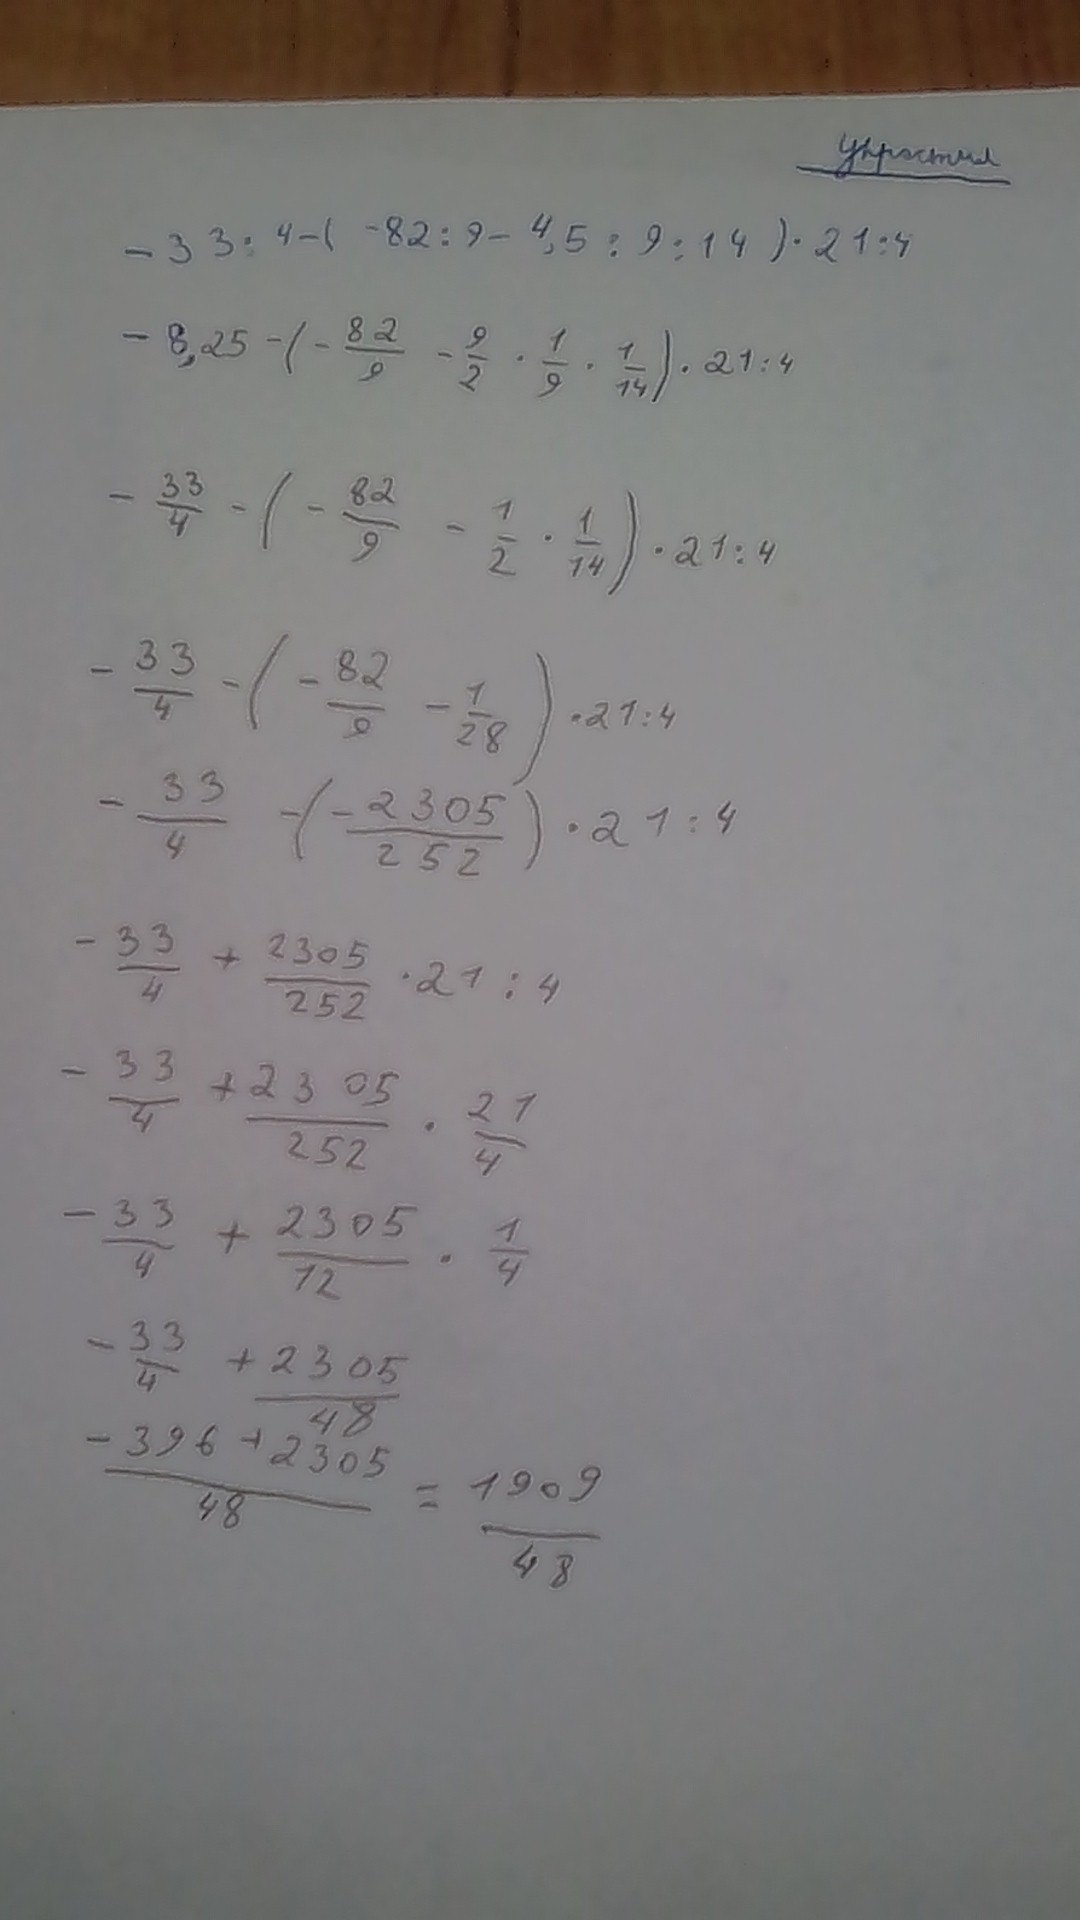 упростил
-33:4-(-82:9-4,5:9:14)·21:4
-8,25-(-82/9-9/2·1/9·1/14)·21:4
-33/4-(-82/9-1/2·1/14)·21:4
-33/4-(-82/9-1/28)·21:4
-33/4-(-2305/252)·21:4
-33/4+2305/252·21:4
-33/4+2305/252·21/4
-33/4+2305/12·1/4
-33/4+2305/48
-396+2305/48=1909/48